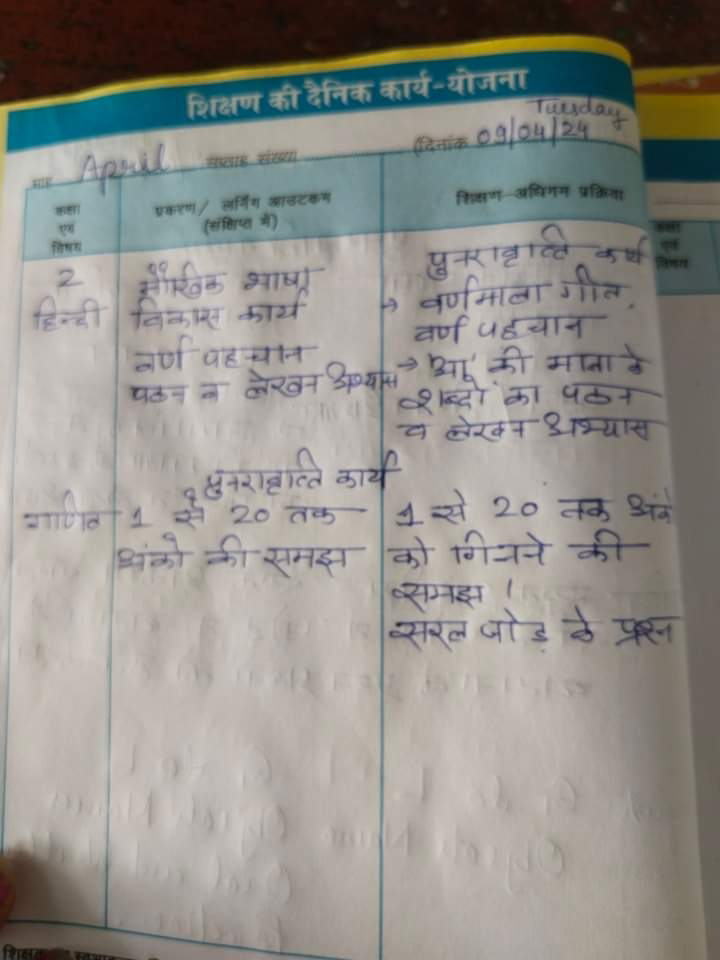 शिक्षण की दैनिक कार्य-योजना
Tuesday
माह April सप्ताह संख्या (दिनांक 09/04/24
कक्षा एवं विषय
प्रकरण/ लर्निंग आउटकम
(संक्षिप्त में)
शिक्षण-अधिगम प्रक्रिया
2
हिन्दी
मौखिक भाषा
विकास कार्य
वर्ण पहचान
पठन व लेखन अभ्यास
पुनरावृत्ति कार्य
→ वर्णमाला गीत,
वर्ण पहचान
→ 'आ' की मात्रा के
शब्दों का पठन
व लेखन अभ्यास
गणित
पुनरावृत्ति कार्य
1 से 20 तक
अंको की समझ
1 से 20 तक अंको
को गिनने की
समझ।
सरल जोड़ के प्रश्न
कक्षा
एवं
विषय